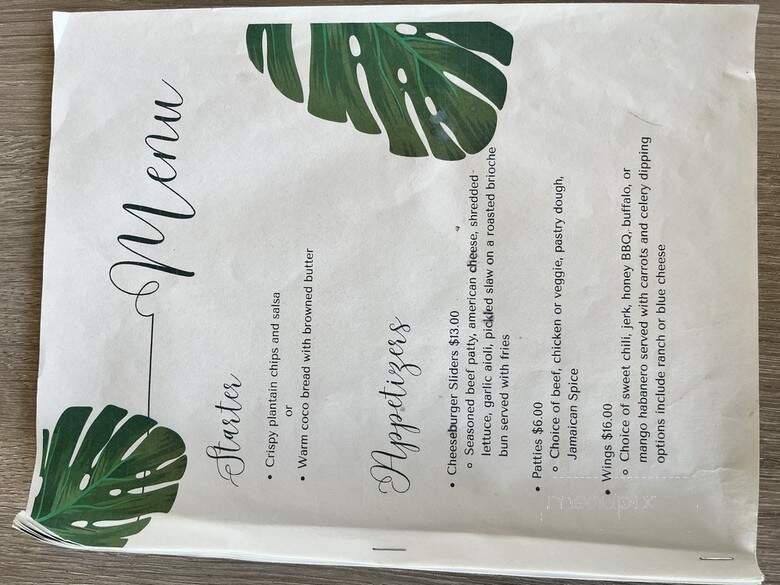 Menu
Starter
• Crispy plantain chips and salsa
or
• Warm coco bread with browned butter
Appetizers
• Cheeseburger Sliders $13.00
o Seasoned beef patty, american cheese, shredded
lettuce, garlic aioli, pickled slaw on a roasted brioche
bun served with fries
• Patties $6.00
o Choice of beef, chicken or veggie, pastry dough,
Jamaican Spice
• Wings $16.00
o Choice of sweet chili, jerk, honey BBQ, buffalo, or
mango habanero served with carrots and celery dipping
options include ranch or blue cheese